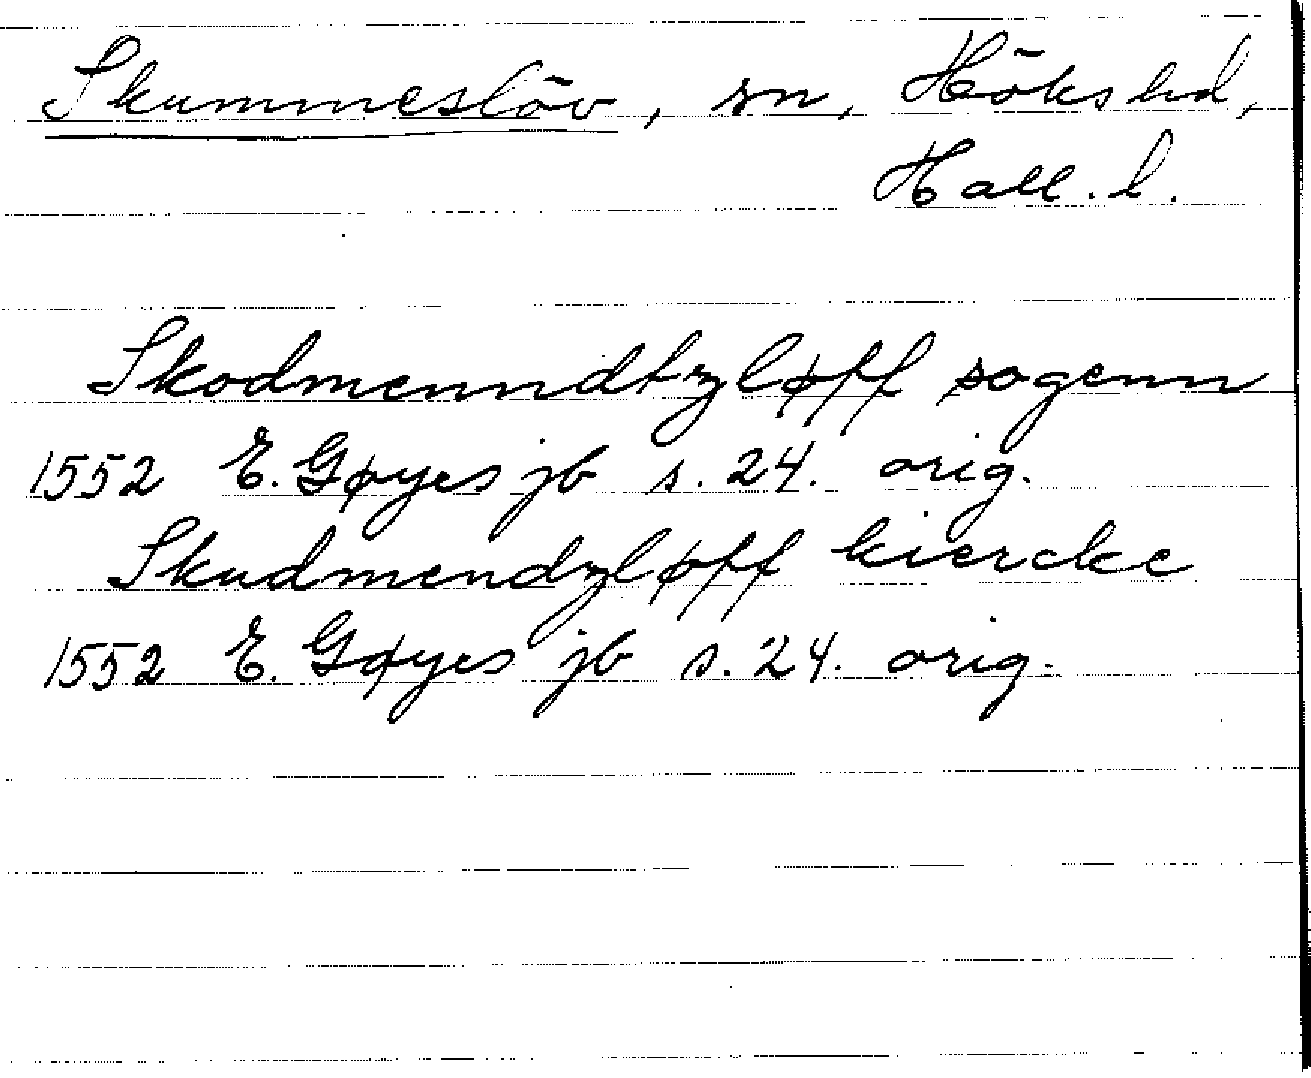 Skummeslöv, sn, Höks hd,
Hall. l.
Skodmenndtzløff sogenn
1552 E. Gøyes jb s. 24. orig.
Skudmendzløff kiercke
1552 E. Gøyes jb s. 24. orig.